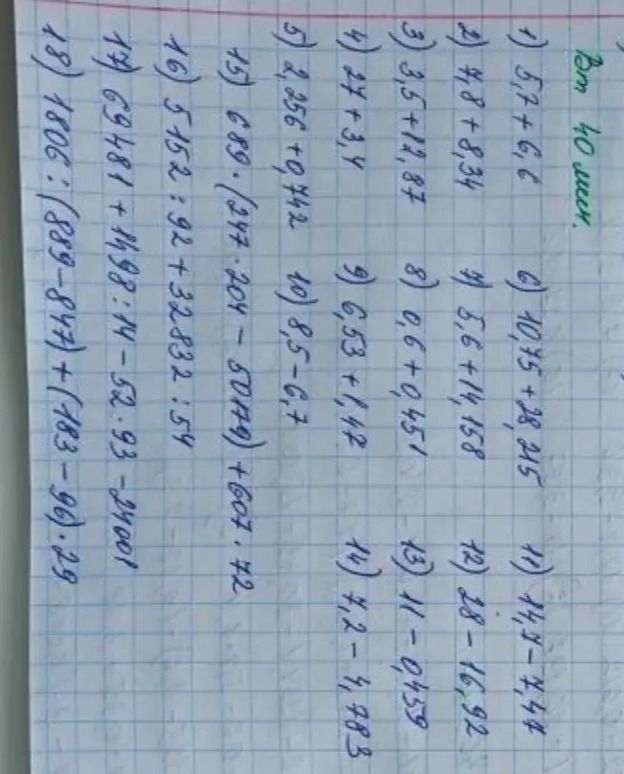 Вт 40 мин.
1) 5,7 + 6,6 6) 10,75 + 28,215 11) 14,7 - 7,47
2) 7,8 + 8,34 7) 5,6 + 14,158 12) 28 - 16,92
3) 3,5 + 12,87 8) 0,6 + 0,451 13) 11 - 0,459
4) 27 + 3,4 9) 6,53 + 1,47 14) 7,2 - 4,783
5) 2,256 + 0,742 10) 8,5 - 6,7
15) 689 · (247 · 204 - 50149) + 607 · 72
16) 5152 : 92 + 32832 : 54
17) 69481 + 1498 : 14 - 52 · 93 - 24001
18) 1806 : (889 - 847) + (183 - 96) · 29